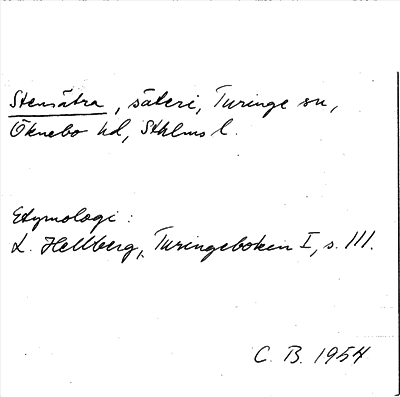 Stensätra, säteri, Turinge sn,
Öknebo hd, Sthlms l.
Etymologi:
L. Hellberg, Turingeboken I, s. 111.
C. B. 1954